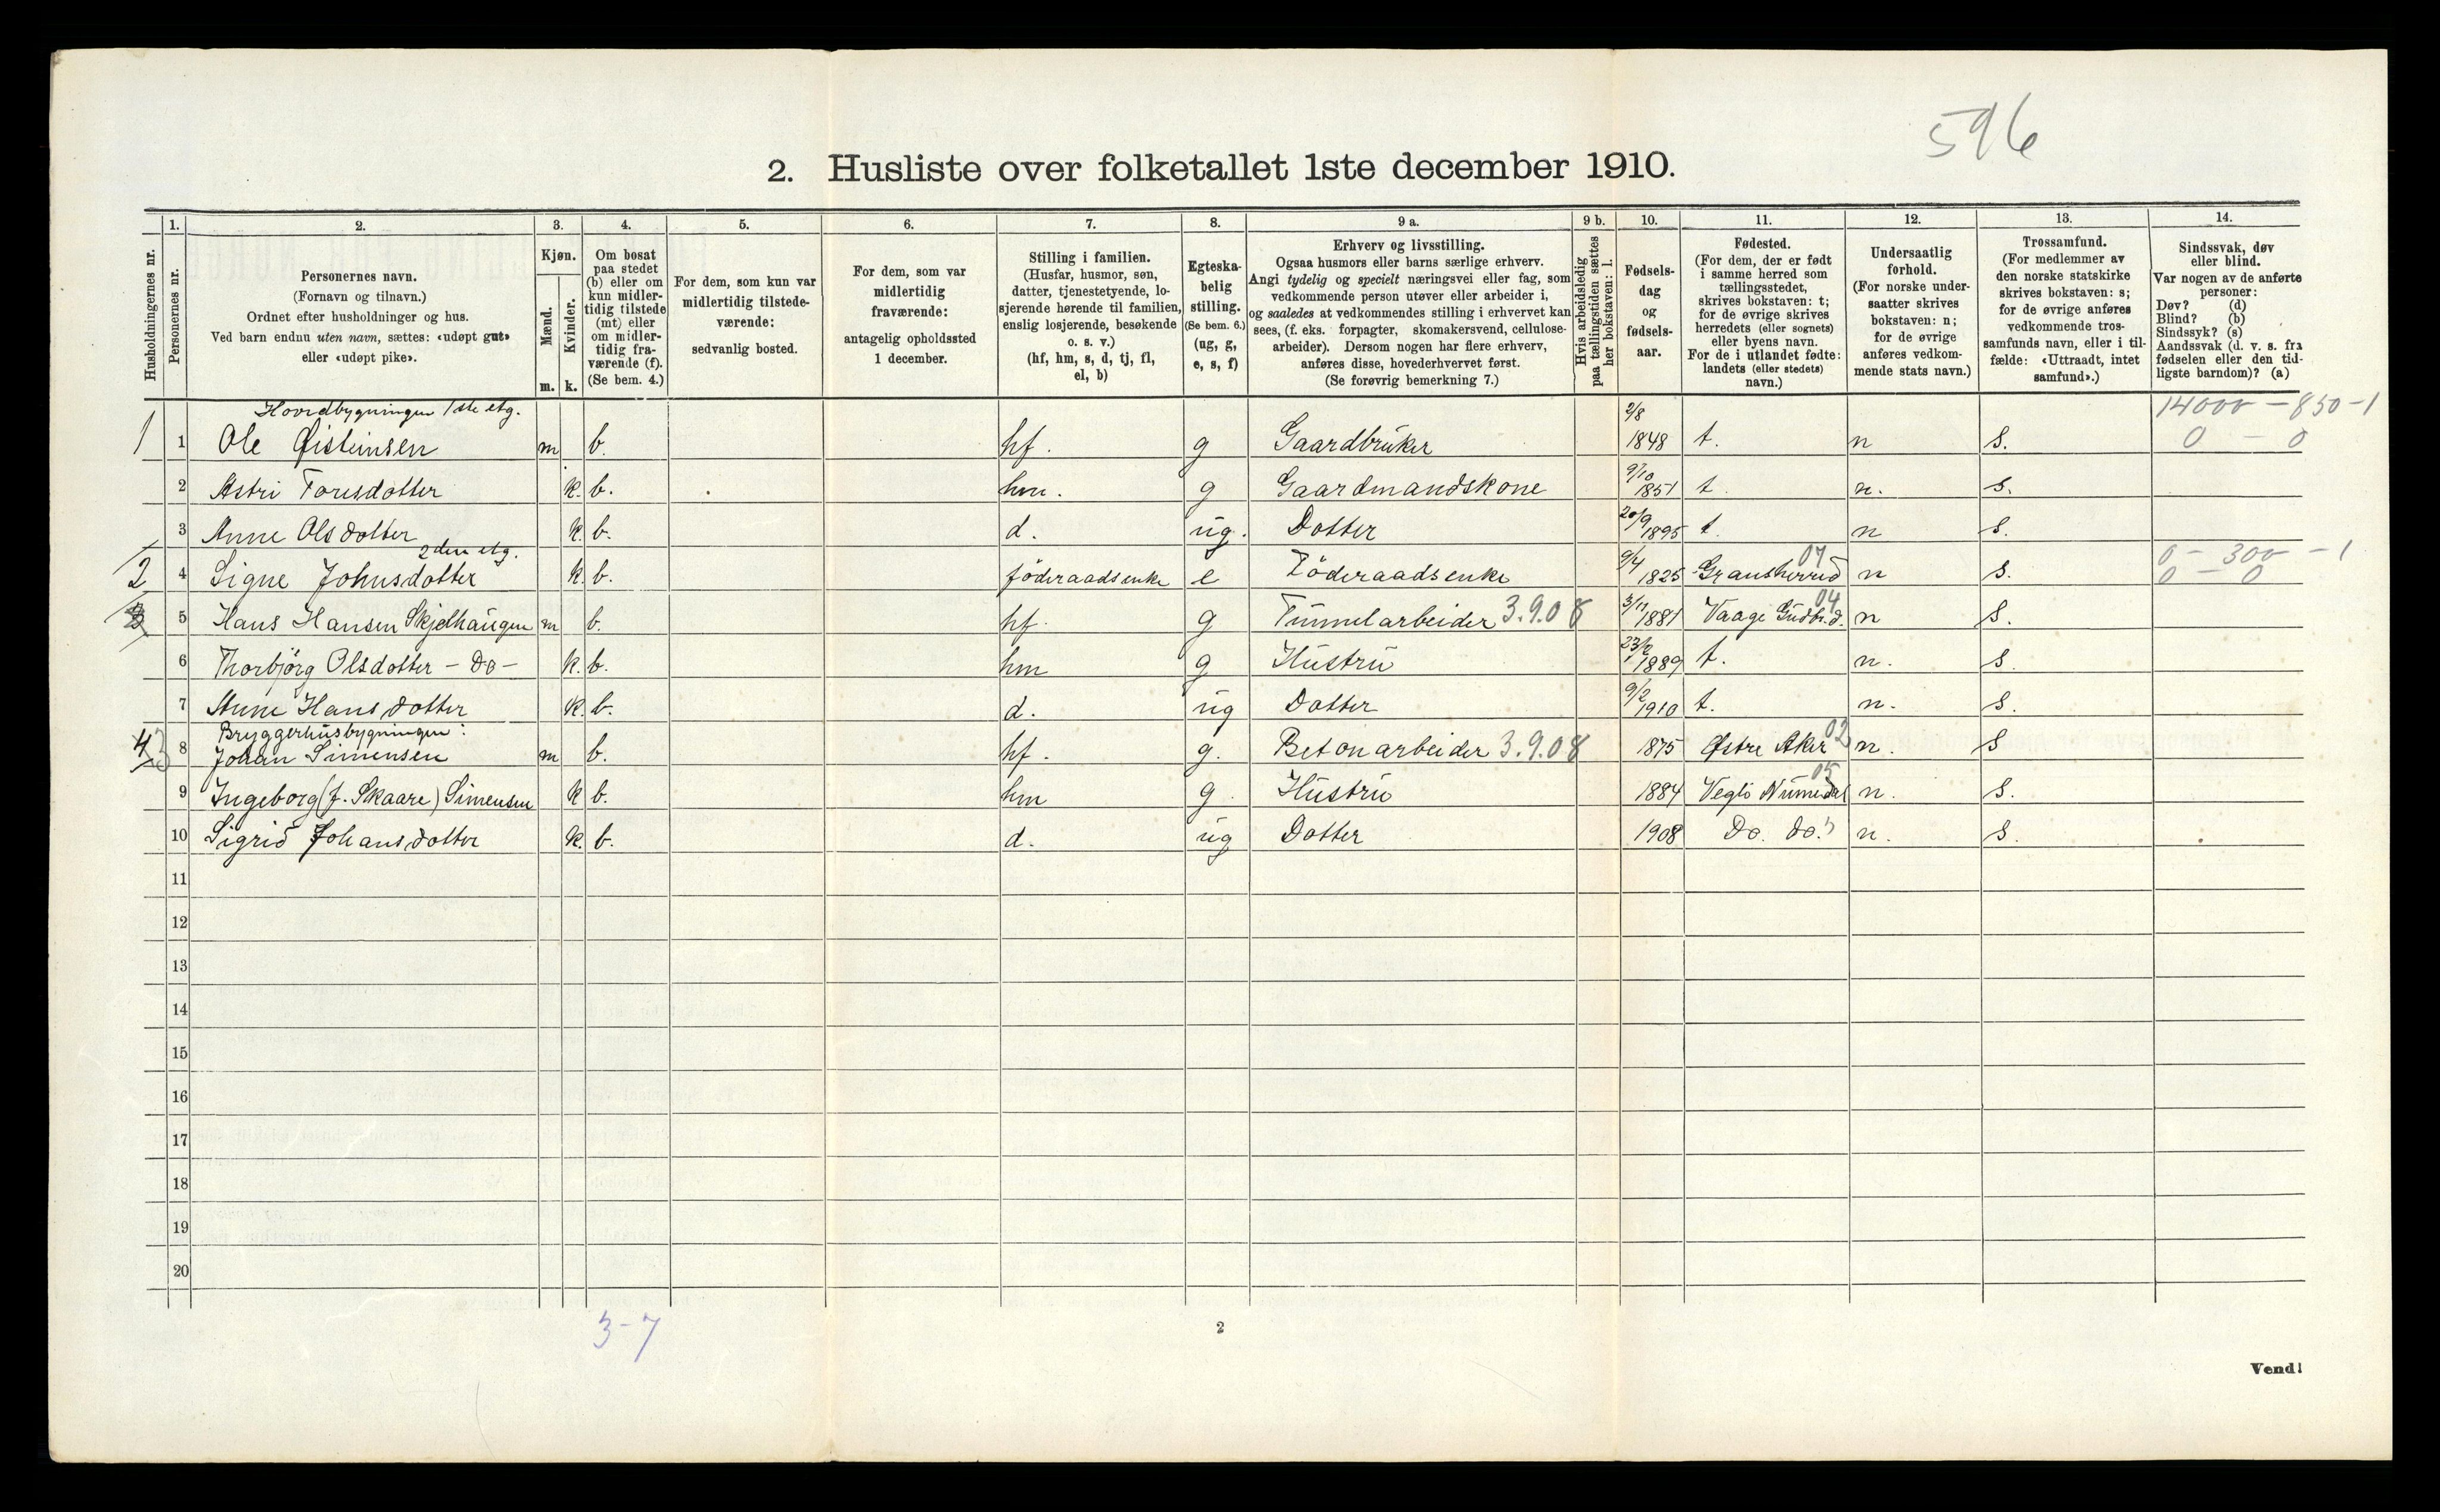 596
2. Husliste over folketallet 1ste december 1910.
Husholdningernes nr.
1. Personernes nr.
2. Personernes navn.
(Fornavn og tilnavn.)
Ordnet efter husholdninger og hus.
Ved barn endnu uten navn, sættes: «udøpt gut»
eller «udøpt pike».
3. Kjøn.
Mænd. m.
Kvinder. k.
4. Om bosat
paa stedet
(b) eller om
kun midler-
tidig tilstede
(mt) eller
om midler-
tidig fra-
værende (f).
(Se bem. 4.)
5. For dem, som kun var
midlertidig tilstede-
værende:
sedvanlig bosted.
6. For dem, som var
midlertidig
fraværende:
antagelig opholdssted
1 december.
7. Stilling i familien.
(Husfar, husmor, søn,
datter, tjenestetyende, lo-
sjerende hørende til familien,
enslig losjerende, besøkende
o. s. v.)
(hf, hm, s, d, tj, fl,
el, b)
8. Egteska-
belig
stilling.
(Se bem. 6.)
(ug, g,
e, s, f)
9 a. Erhverv og livsstilling.
Ogsaa husmors eller barns særlige erhverv.
Angi tydelig og specielt næringsvei eller fag, som
vedkommende person utøver eller arbeider i,
og saaledes at vedkommendes stilling i erhvervet kan
sees, (f. eks. forpagter, skomakersvend, cellulose-
arbeider). Dersom nogen har flere erhverv,
anføres disse, hovederhvervet først.
(Se forøvrig bemerkning 7.)
9 b. Hvis arbeidsledig
paa tællingstiden sættes
her bokstaven: l.
10. Fødsels-
dag
og
fødsels-
aar.
11. Fødested.
(For dem, der er født
i samme herred som
tællingsstedet,
skrives bokstaven: t;
for de øvrige skrives
herredets (eller sognets)
eller byens navn.
For de i utlandet fødte:
landets (eller stedets)
navn.)
12. Undersaatlig
forhold.
(For norske under-
saatter skrives
bokstaven: n;
for de øvrige
anføres vedkom-
mende stats navn.)
13. Trossamfund.
(For medlemmer av
den norske statskirke
skrives bokstaven: s;
for de øvrige anføres
vedkommende tros-
samfunds navn, eller i til-
fælde: «Uttraadt, intet
samfund».)
14. Sindssvak, døv
eller blind.
Var nogen av de anførte
personer:
Døv? (d)
Blind? (b)
Sindssyk? (s)
Aandssvak (d. v. s. fra
fødselen eller den tid-
ligste barndom)? (a)
Hovedbygningen 1ste etg. 14000 - 850 - 1
1 1 Ole Øisteinsen m b. hf. g Gaardbruker 2/8 1848 t. n s. 0 - 0
2 Astri Toresdotter k. b. hm. g Gaardmandskone 9/10 1851 t n. s.
3 Anne Olsdotter k. b. d. ug. Dotter 20/9 1895 t. n s.
2den etg. 0 - 300 - 1
2 4 Signe Johnsdotter k. b. föderaadsenke e Föderaadsenke 9/4 1825 Gransherred 07 n s. 0 - 0
3 5 Hans Hansen Skjelhaugen m b. hf. g Tunnelarbeider 3.9.08 3/11 1881 Vaage Gudbr.d. 04 n s.
6 Thorbjørg Olsdotter - do - k. b. hm g Hustru 23/2 1889 t. n. s.
7 Anne Hansdotter k. b. d. ug Dotter 9/2 1910 t. n. s.
Bryggerhusbygningen:
4 3 8 Johan Simensen m b. hf. g. Betonarbeider 3.9.08 1875 Østre Aker 02 n. s
9 Ingeborg (f. Skaare) Simensen k b. hm g. Hustru 1884 Veglö Numedal 05 n. s.
10 Sigrid Johansdotter k. b. d. ug Dotter 1908 Do. do. n. s.
11
12
13
14
15
16
17
18
19
20
3-7
2
Vend!